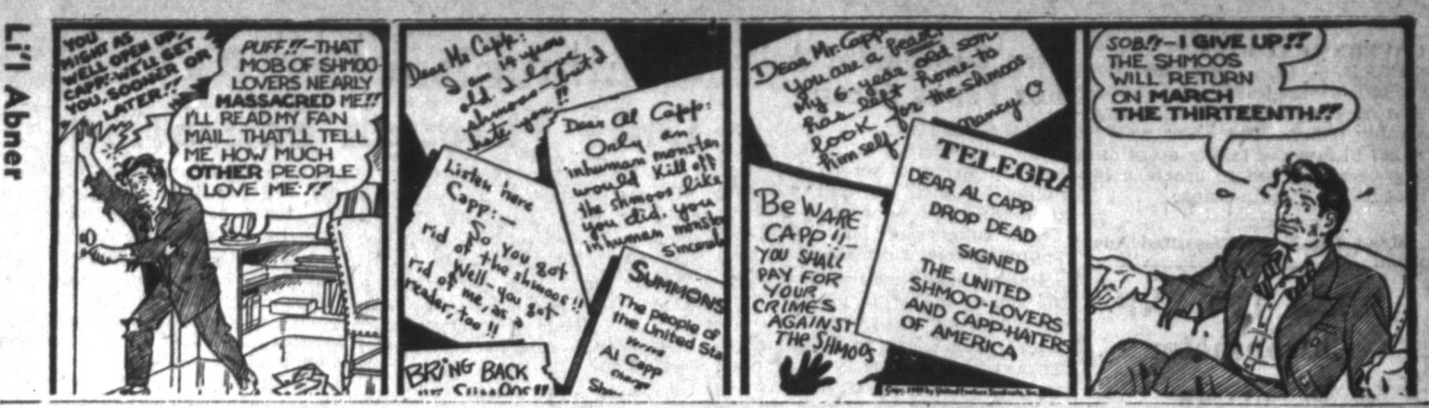 Li'l Abner
YOU
MIGHT AS
WELL OPEN UP,
CAPP!-WE'LL GET
YOU, SOONER OR
LATER!!
PUFF!!-THAT
MOB OF SHMOO-
LOVERS NEARLY
MASSACRED ME!!
I'LL READ MY FAN
MAIL. THAT'LL TELL
ME HOW MUCH
OTHER PEOPLE
LOVE ME!!
Dear Mr. Capp:
I am 14 years
old. I love
shmoos-but I
hate you!!
Dear Al Capp:
Only an
inhuman monster
would kill off
the shmoos like
you did, you
inhuman monster
Listen here
Capp:-
So You got
rid of the shmoos!!
Well-you got
rid of me, as a
reader, too!!
SUMMONS
The people of
the United Sta
versus
Al Capp
charge
BRING BACK
SHMOOS!!
Dear Mr. Capp
You are a beast
My 6-year old son
has left home to
look for the Shmoos
himself.
Nancy O.
BEWARE
CAPP!!-
YOU SHALL
PAY FOR
YOUR
CRIMES
AGAINST
THE SHMOOS
TELEGRA
DEAR AL CAPP
DROP DEAD
SIGNED
THE UNITED
SHMOO-LOVERS
AND CAPP-HATERS
OF AMERICA
SOB!!-I GIVE UP!!
THE SHMOOS
WILL RETURN
ON MARCH
THE THIRTEENTH!!